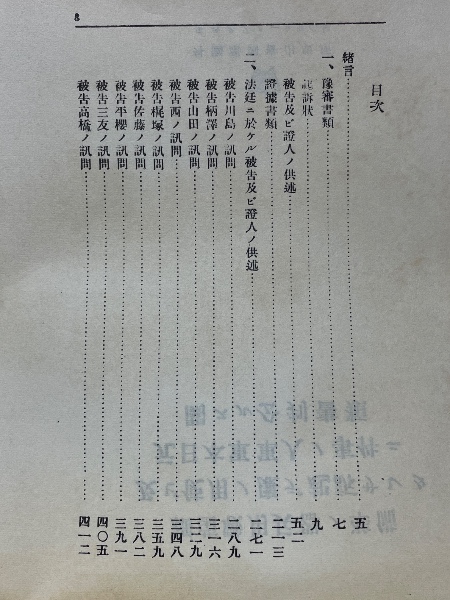 目次
緒言……五
一、豫審書類……七
起訴狀……九
被告及ビ證人ノ供述……五二
證據書類……二一三
二、法廷ニ於ケル被告及ビ證人ノ供述……二七一
被告川島ノ訊問……二八九
被告柄澤ノ訊問……三一六
被告山田ノ訊問……三二九
被告西ノ訊問……三四八
被告梶塚ノ訊問……三五九
被告佐藤ノ訊問……三八二
被告平櫻ノ訊問……三九一
被告三友ノ訊問……四〇五
被告高橋ノ訊問……四一二